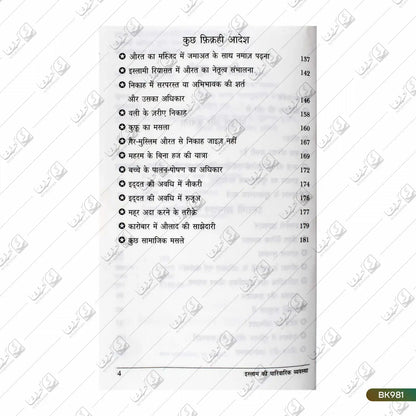 कुछ फ़िक़्ही आदेश
✪ औरत का मस्जिद में जमाअत के साथ नमाज़ पढ़ना 137
✪ इस्लामी रियासत में औरत का नेतृत्व संभालना 142
✪ निकाह में सरपरस्त या अभिभावक की शर्त
और उसका अधिकार 146
✪ वली के ज़रीए निकाह 158
✪ कुफ़ू का मसला 160
✪ ग़ैर-मुस्लिम औरत से निकाह जाइज़ नहीं 167
✪ महरम के बिना हज की यात्रा 169
✪ बच्चे के पालन-पोषण का अधिकार 172
✪ इद्दत की अवधि में नौकरी 174
✪ इद्दत की अवधि में रुजूअ 176
✪ महर अदा करने के तरीक़े 177
✪ कारोबार में औलाद की साझेदारी 179
✪ कुछ सामाजिक मसले 181
4 इस्लाम की पारिवारिक व्यवस्था
BK981